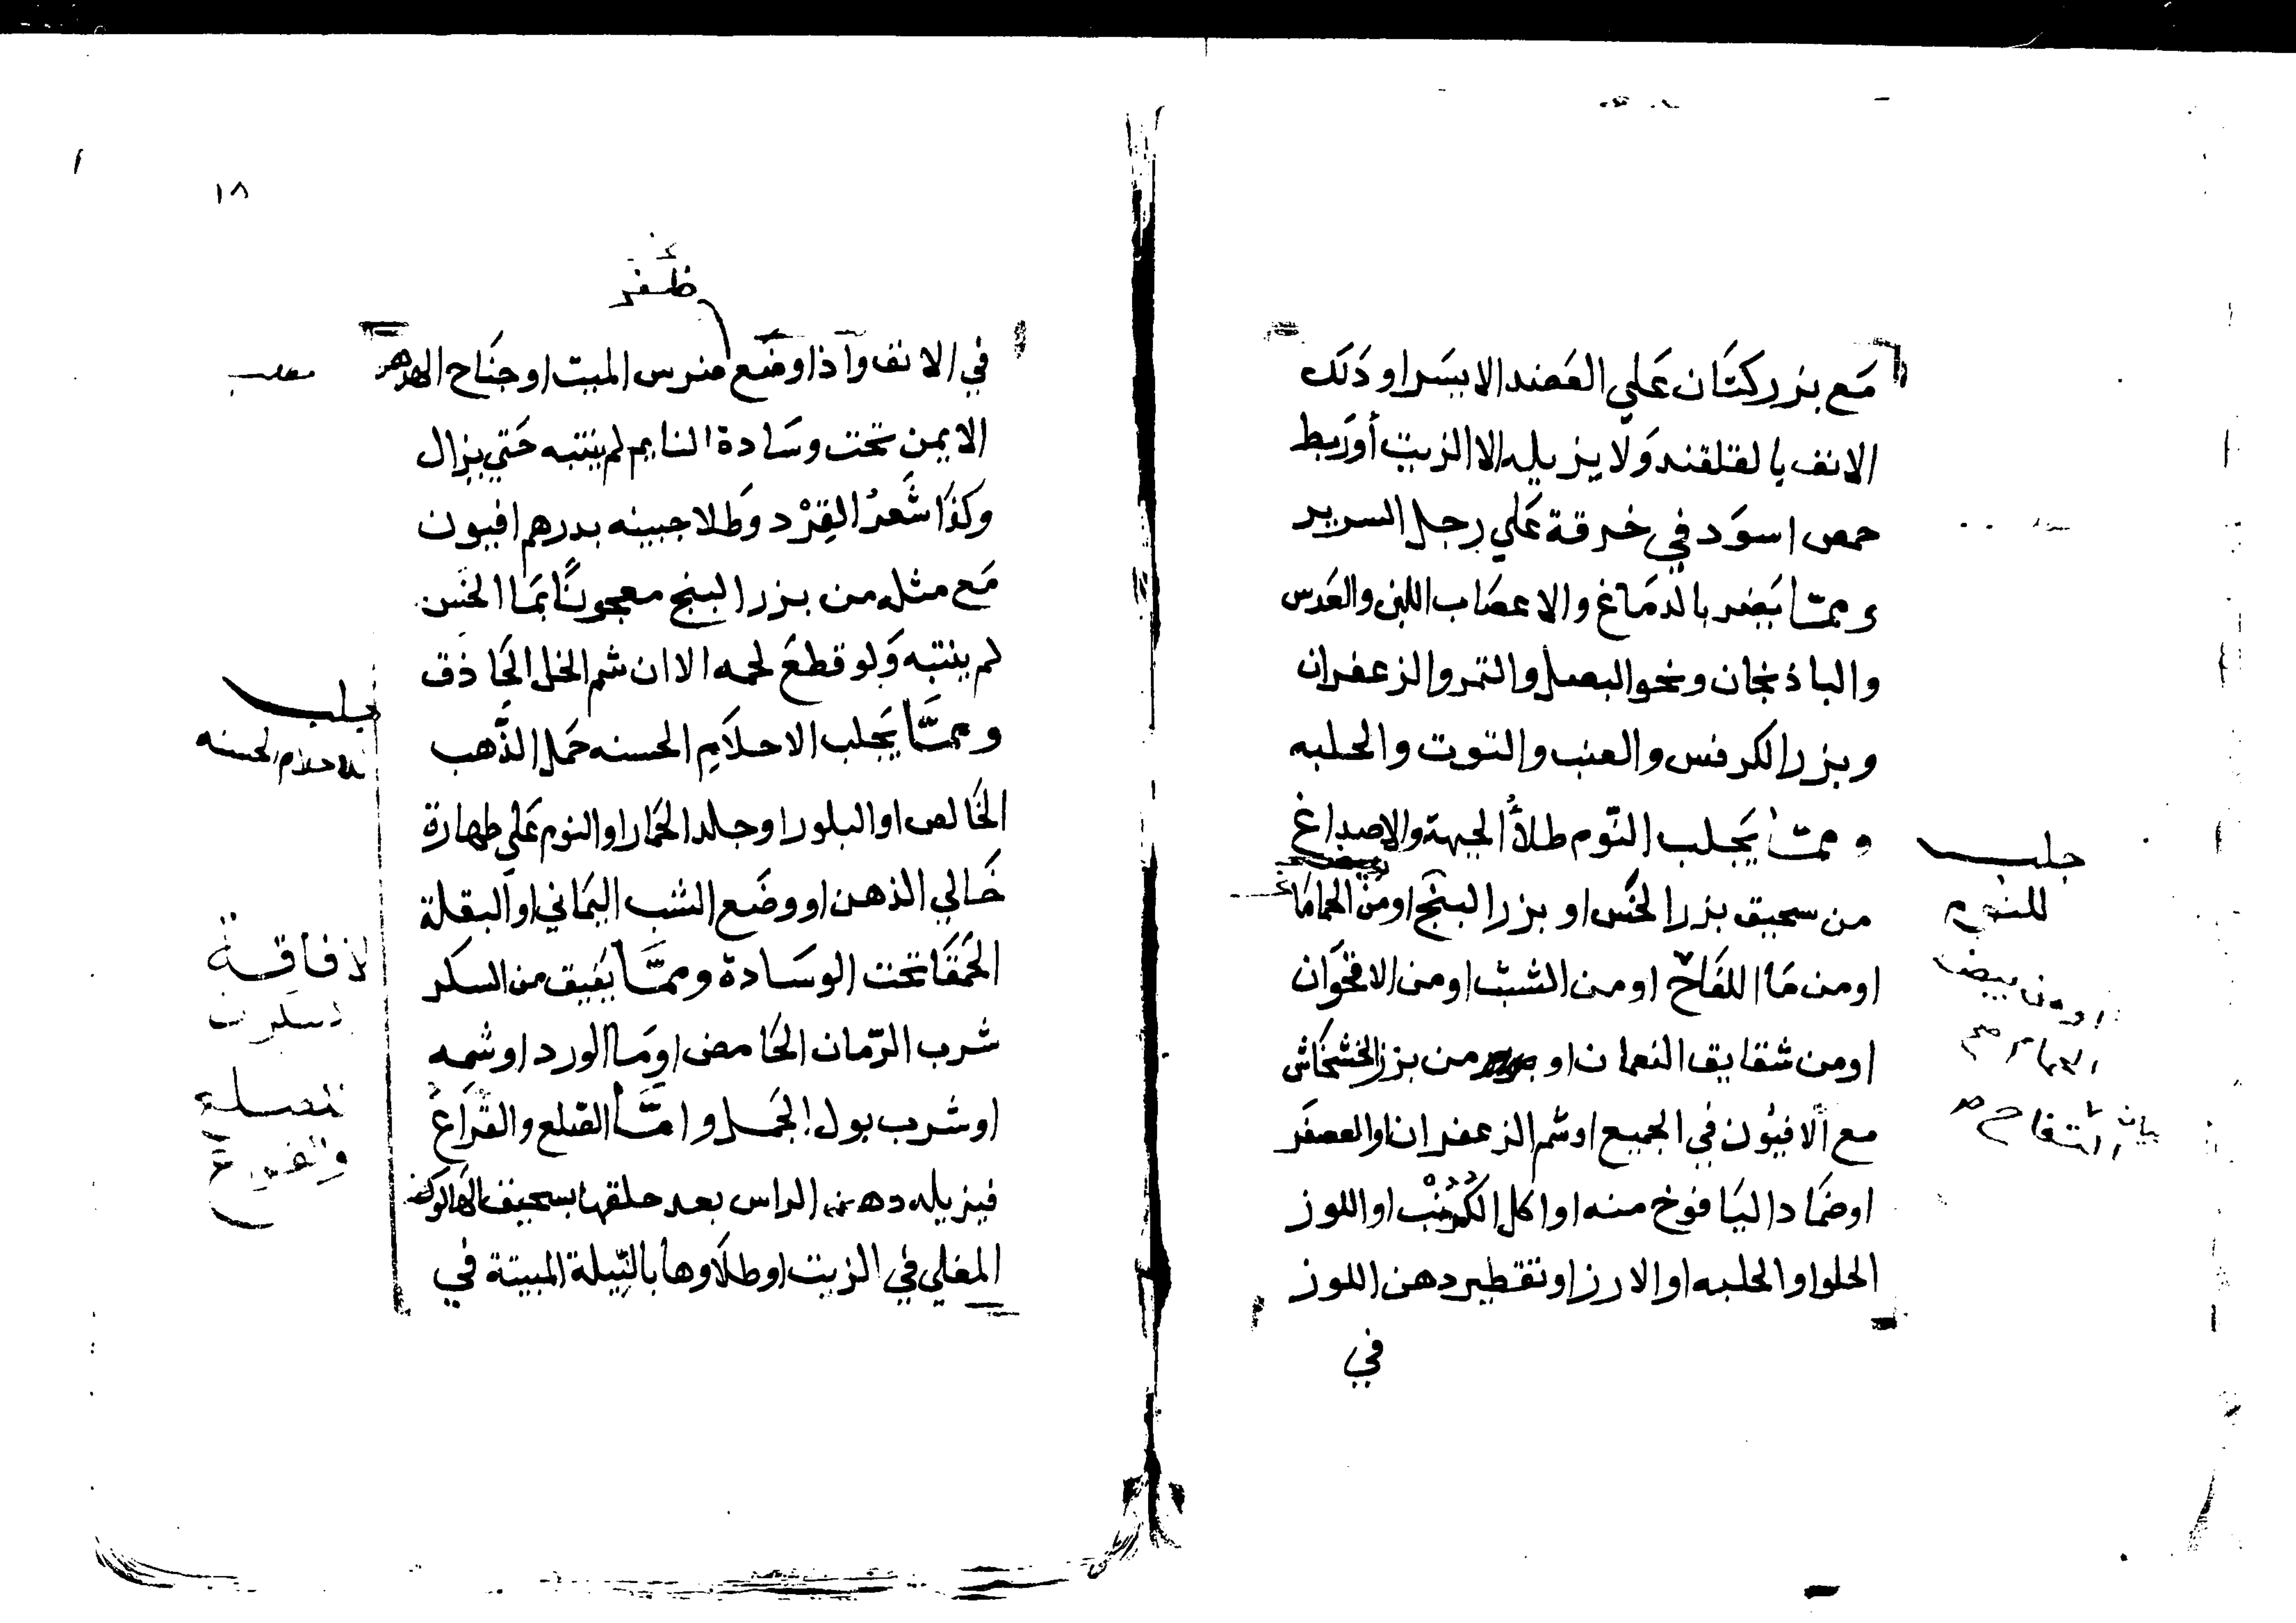 مَع بزر كتَان عَلي العَضد الايسَر او دَلَك
الانف بالقلقند وَلا يزيله الا الزيت أورَبط
حمص اسوَد في خرقة عَلي رجل السرير
وممّا يَضر بالدمَاغ والاعصَاب اللبن والعَدس
والباذنجان ونحو البصل والتمر والزعفران
وبزر الكرفس والعنب والتوت والحلبه
وممّا يَجلب النّوم طلأُ الجبهة والاصداغ
من سحيق بزر الخَس او بزر البنج اومن الحمامَا
اومن مَا اللفَاح اومن الشبث اومن الاقحوَان
اومن شقايق النعمان او من بزر الخشخَاش
مع الافيُون في الجميع اوشم الزعفران او العصفَر
اوضمَاد اليَافوخ منه او اكل الكُرُنْب او اللوز
الحلو او الحلبه او الارز او تقطير دهن اللوز
في
جلب
للنوم
اومن بيض
١٨
ظفر
في الانف واذا وضَع ضرس الميت او جنَاح الهدهد
الايمن تحت وسَادة النايم لم ينتبه حَتي يزال
وكذَا شَعرُ القِرْد وَطلا جبينه بدرهم افيون
مَع مثله من بزر البنج معجونًا بمَا الخَس
لم ينتبه وَلو قطعَ لحمه الا ان شم الخل الحَاذَق
وممَّا يَجلب الاحلَام الحسنه حَمل الذَّهب
الخَالص او البلور او جلد الحَمار او النوم عَلي طهارة
خَالي الذهن او وضَع الشب اليمَاني او البقلة
الحَمقَا تحت الوسَادة وممَّا يفيق من السكر
شرب الرّمان الحَامض اومَا الورد او شمه
او شرب بول الجَمل وامَّا الصّلع والقرَاع
فيزيله دهن الراس بعد حلقها بسحيق
المغلي في الزيت او طلَاوها بالنّيلة المبيتة في
يجلب
للاحلام الحسنه
لافاقة